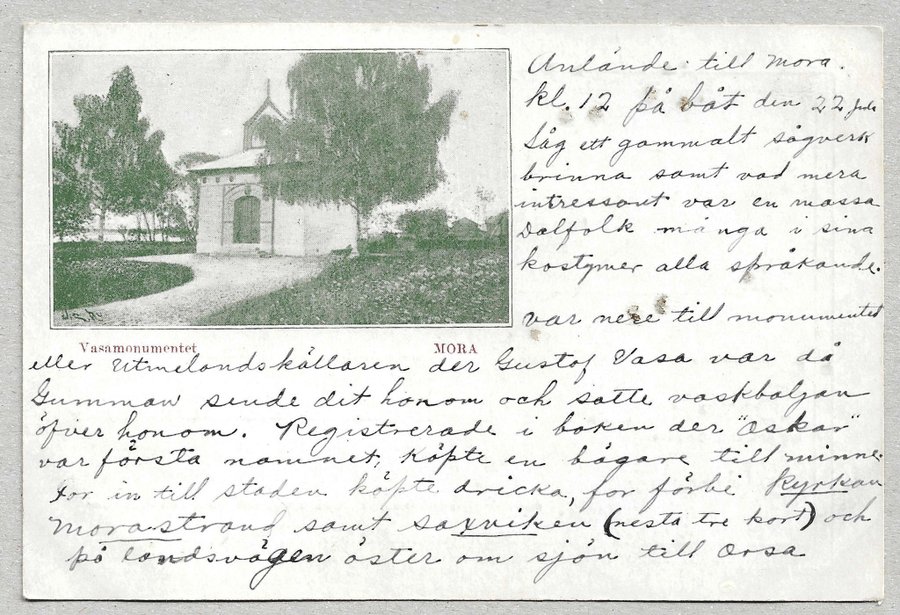 Anlände till Mora.
kl. 12 på båt den 22
Såg ett gammalt sågverk
brinna samt vad mera
intressant var en massa
Dalfolk många i sina
kostymer alla språkande.
var nere till monumentet
Vasamonumentet
MORA
eller Utmelandskällaren der Gustof Vasa var då
Gumman sende dit honom och satte vaskbaljan
öfver honom. Registrerade i boken der "Oskar"
var första namnet, köpte en bägare till minne.
for in till staden köpte dricka, for förbi kyrkan
Morastrand samt saxviken (nesta tre kort) och
på landsvägen öster om sjön till Orsa